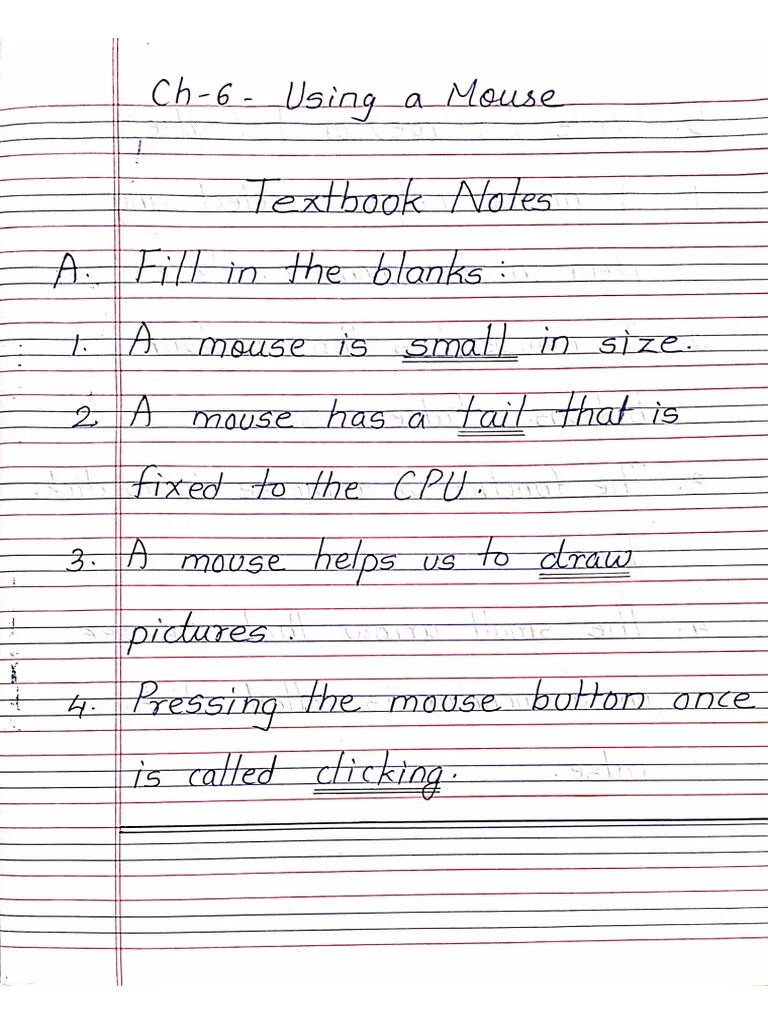 Ch-6 - Using a Mouse
Textbook Notes
A. Fill in the blanks :
1. A mouse is small in size.
2. A mouse has a tail that is
fixed to the CPU.
3. A mouse helps us to draw
pictures.
4. Pressing the mouse button once
is called clicking.